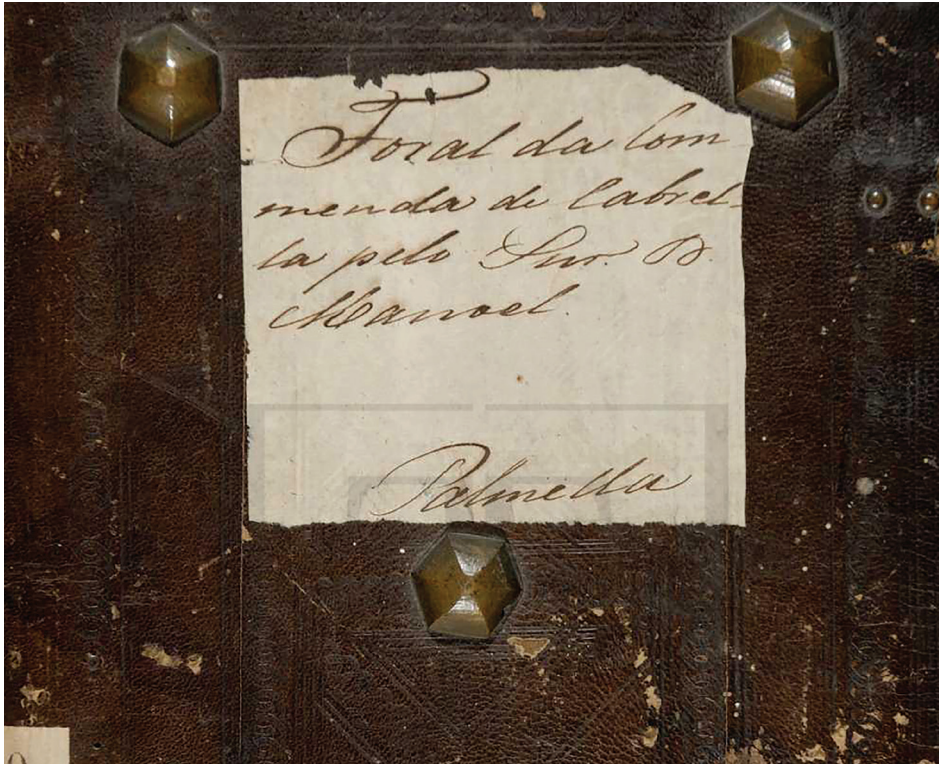 Foral da Com
menda de Cabrel-
la pelo Snr. D.
Manoel.
Palmella